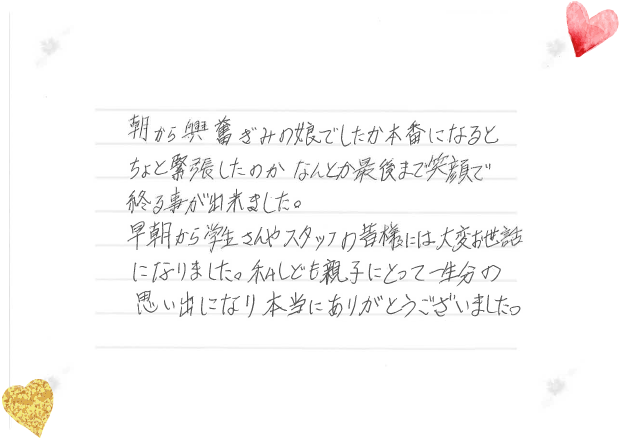 朝から興奮ぎみの娘でしたが本番になると
ちょと緊張したのか なんとか最後まで笑顔で
終る事が出来ました。
早朝から学生さんやスタッフの皆様には大変お世話
になりました。私しども親子にとって一生分の
思い出になり本当にありがとうございました。